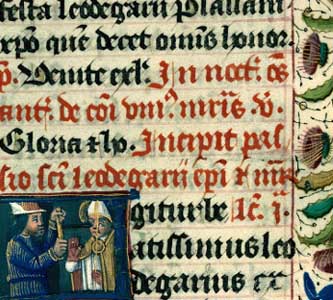 festa leodegarii psallam
xpõ quẽ decet omnis honor.
p̃. Venite exl'. In noct'. õs
ant'. de cõi vniꝰ mr̃is. V̾.
Gloria ⁊ hõ. Incipit pas
sio sc̃i leodegarii ep̃i ⁊ mr̃is
gitur be lc̃. j.
atissimus leo
degarius ex